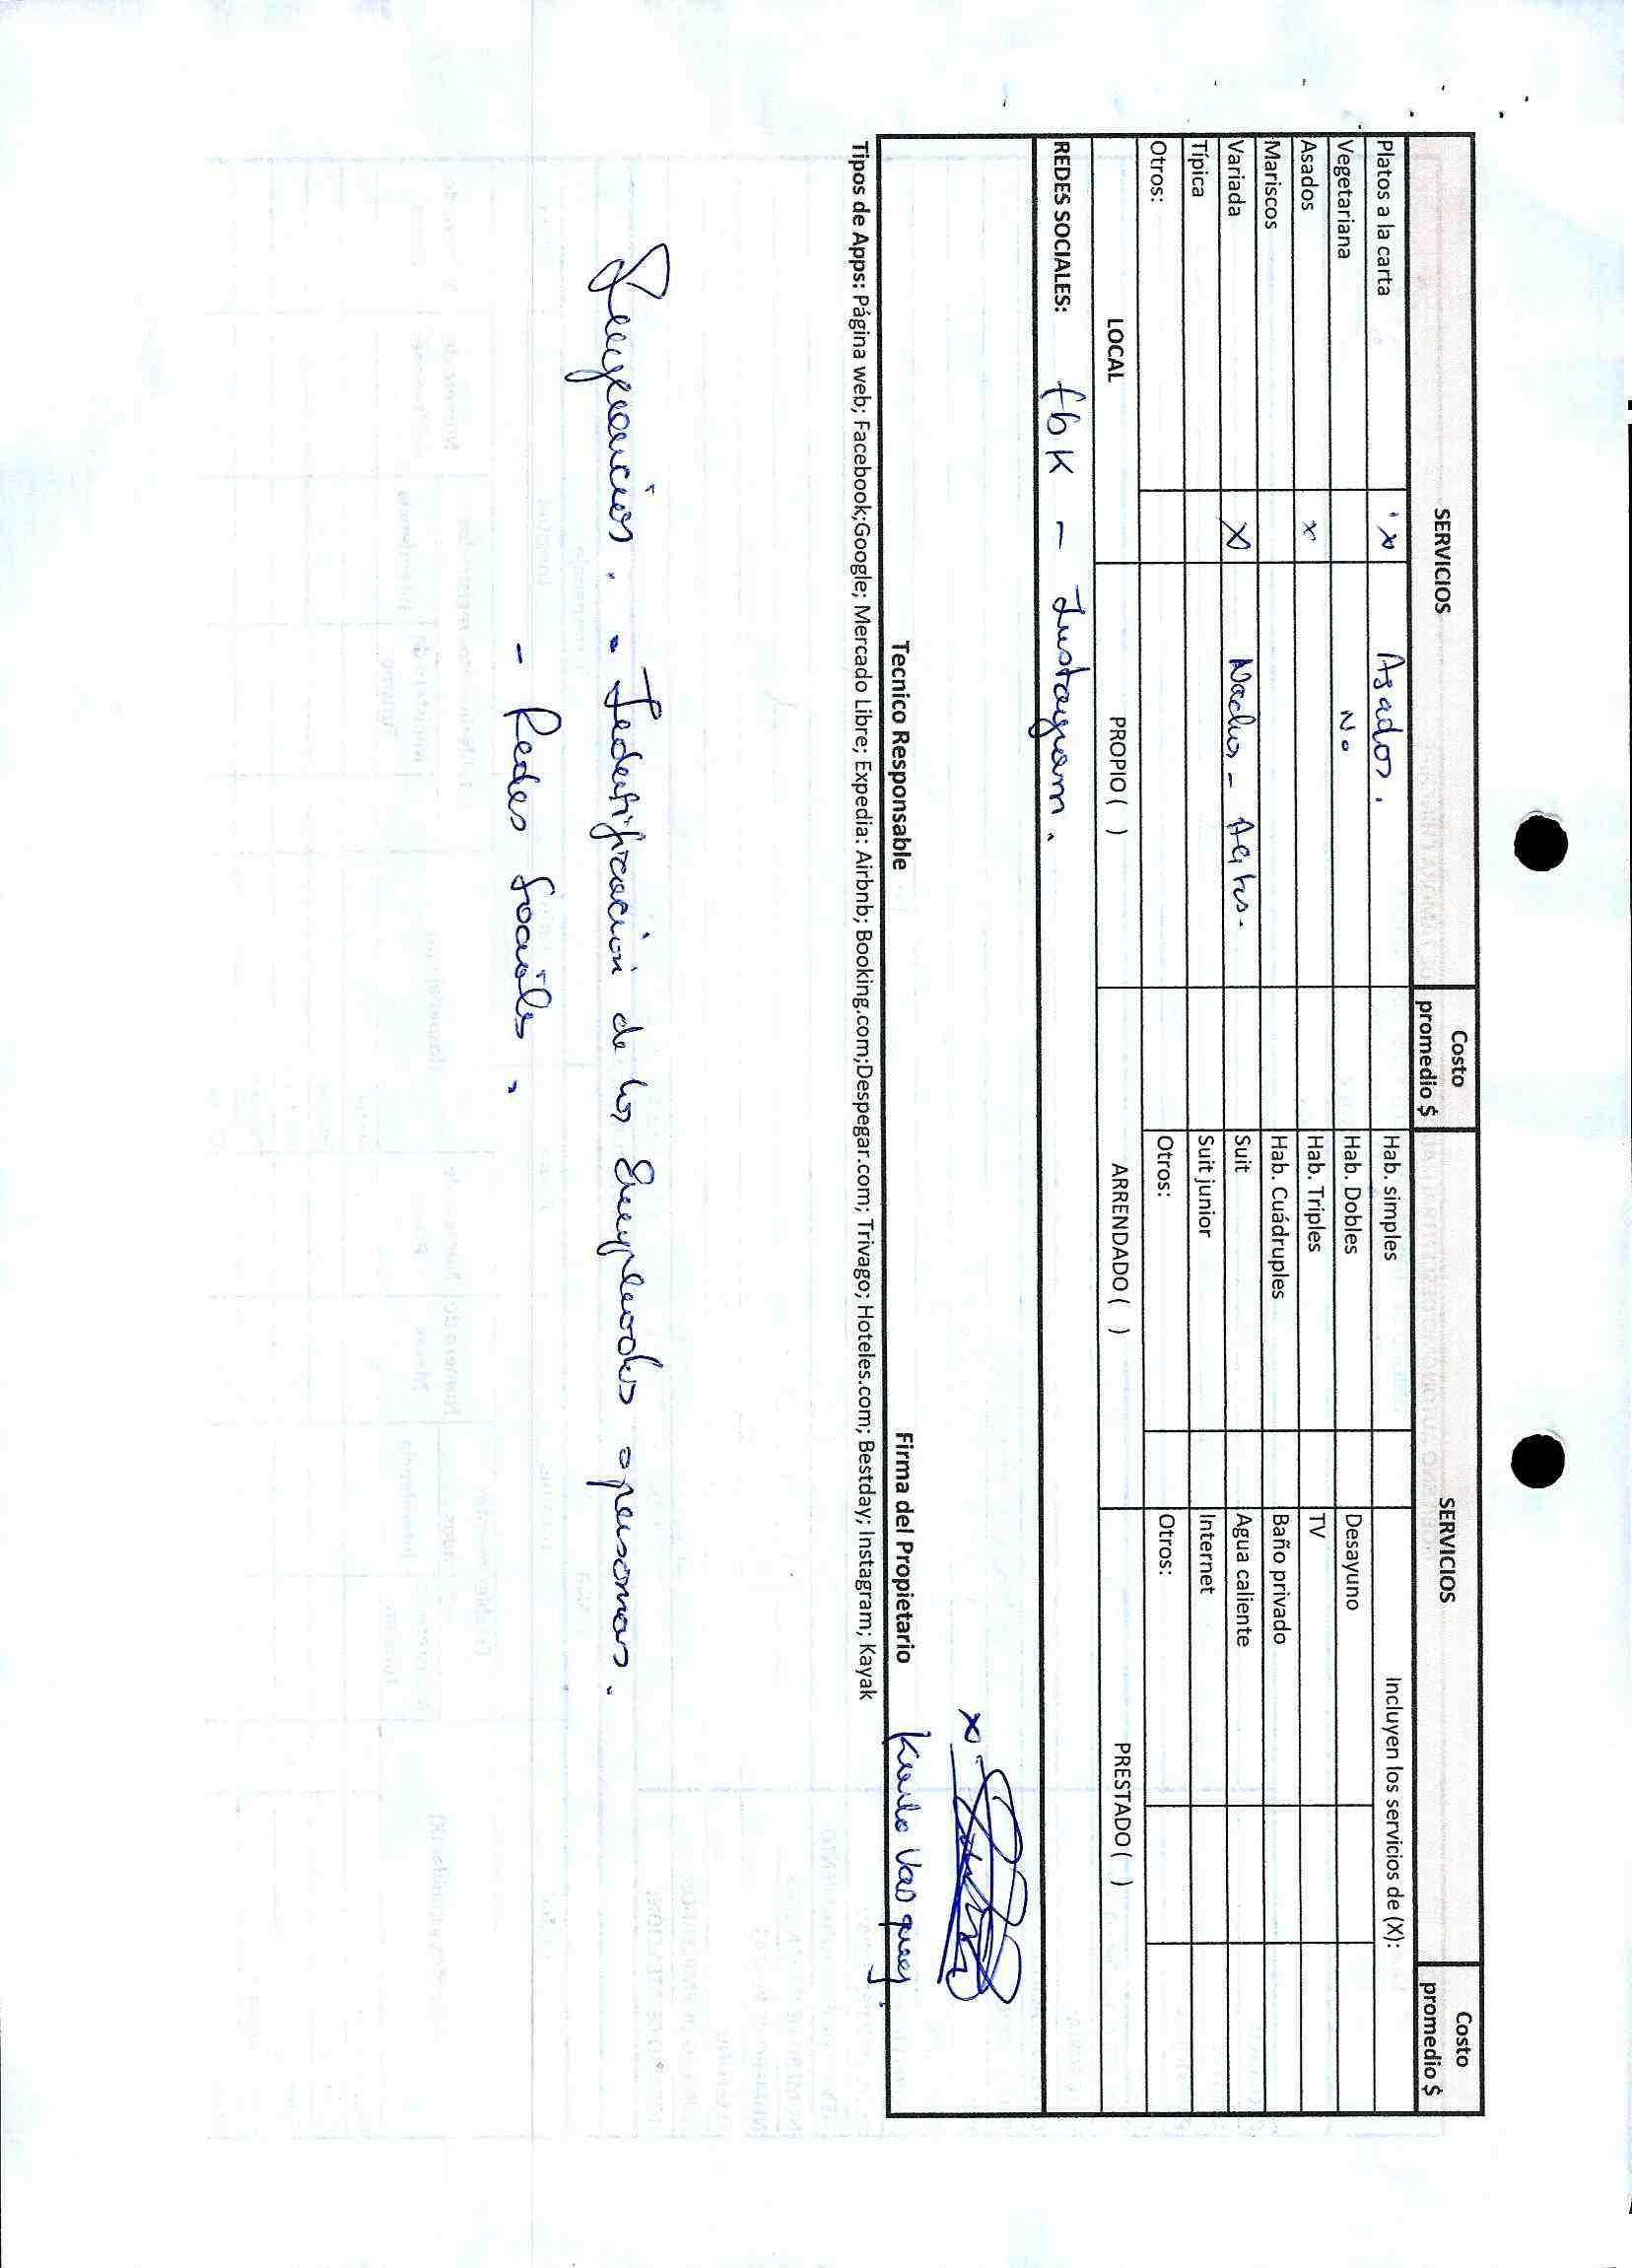 SERVICIOS Costo promedio $ SERVICIOS Costo promedio $
Platos a la carta x Asados. Hab. simples Incluyen los servicios de (X):
Vegetariana No Hab. Dobles Desayuno
Asados x Hab. Triples TV
Mariscos Hab. Cuádruples Baño privado
Variada X Nachos - Suit Agua caliente
Típica Suit junior Internet
Otros: Otros: Otros:
LOCAL PROPIO ( ) ARRENDADO ( ) PRESTADO ( )
REDES SOCIALES: fbk - Instagram.
Tecnico Responsable Firma del Propietario Karla Vasquez.
Tipos de Apps: Página web; Facebook;Google; Mercado Libre; Expedia: Airbnb; Booking.com;Despegar.com; Trivago; Hoteles.com; Bestday; Instagram; Kayak
- Identificación de los Empleados o personas.
- Redes Sociales.